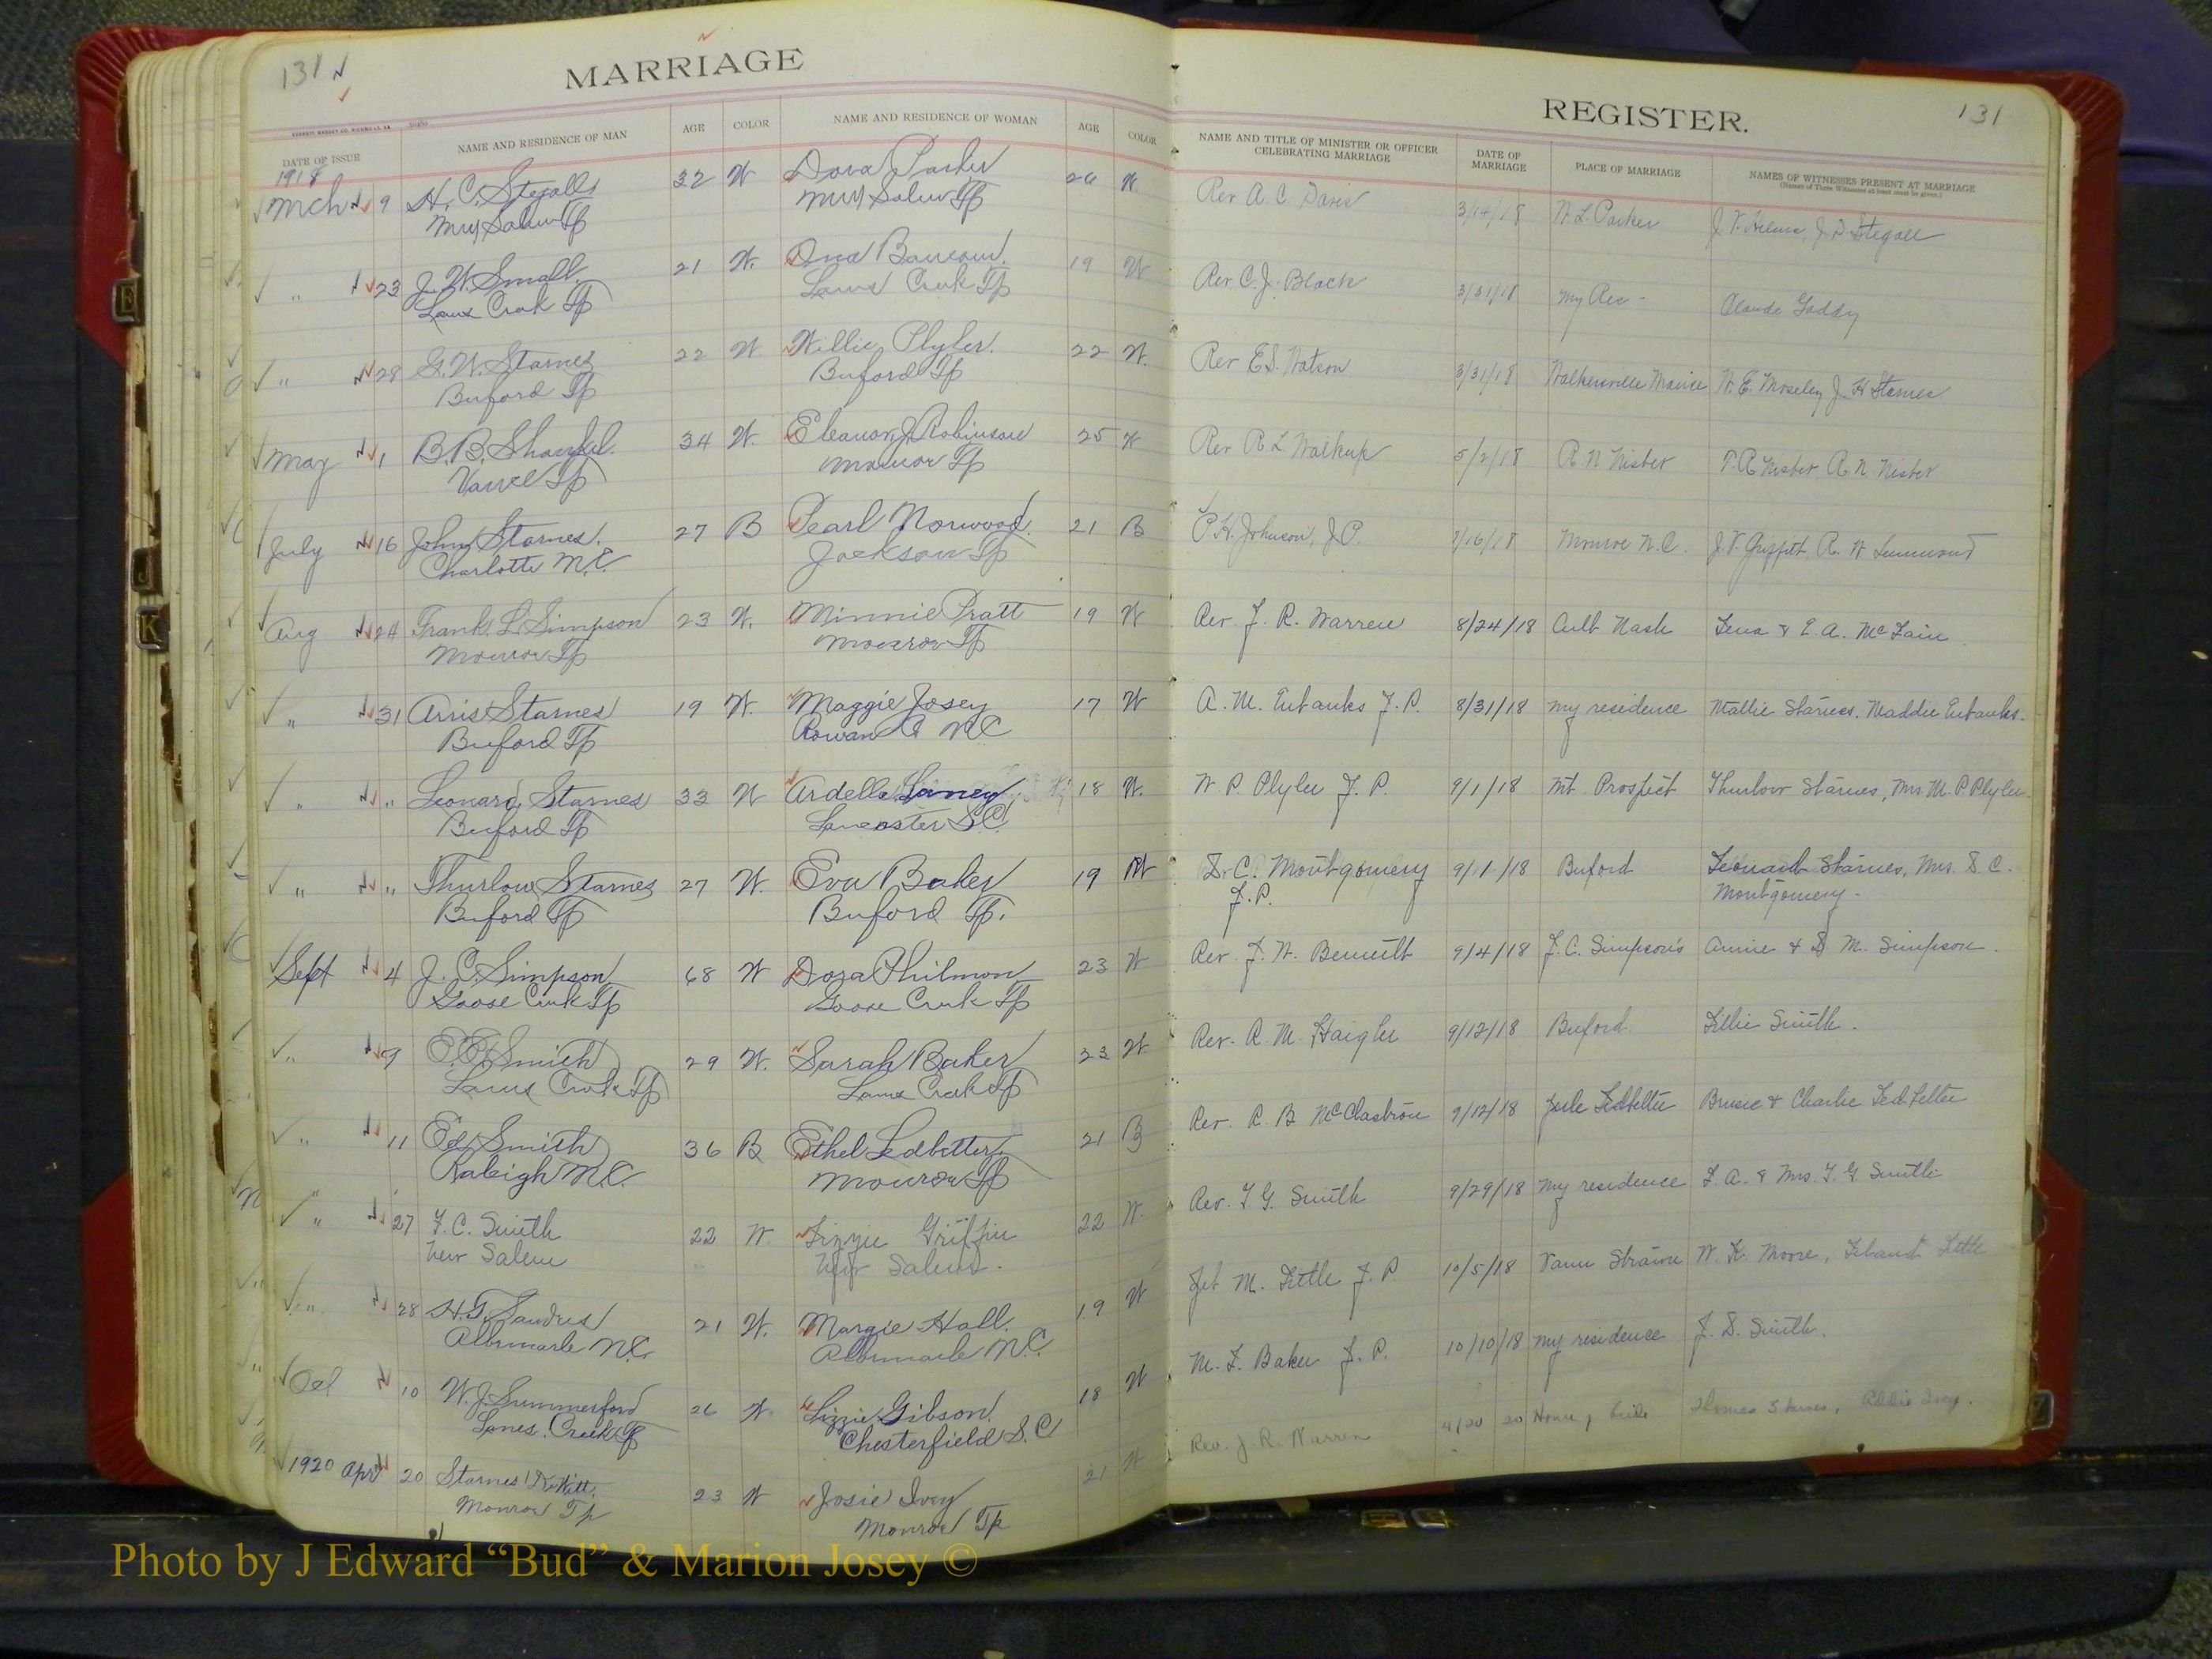 131
MARRIAGE
DATE OF ISSUE
NAME AND RESIDENCE OF MAN
AGE
COLOR
NAME AND RESIDENCE OF WOMAN
AGE
COLOR
1918
Mch 9 H. C. Stegall 32 W Dora Parker 26 W.
New Salem Tp New Salem Tp
" 23 J. W. Small 21 W. Ona 19 W
Lanes Creek Tp Lanes Creek Tp
" 28 G. W. Starnes 22 W. Willie Plyler. 22 W.
Buford Tp Buford Tp
May 1 B. B. 34 W. Eleanor J. Robinson 25 W
Vance Tp Monroe Tp
July 16 John Starnes. 27 B Pearl Norwood 21 B
Charlotte N.C. Jackson Tp
Aug 24 Frank L. Simpson 23 W. Minnie Pratt 19 W
Monroe Tp Monroe Tp
" 31 Arris Starnes 19 W. Maggie Josey 17 W
Buford Tp Rowan Co NC
" " Leonard Starnes 33 W Ardella Laney 18 W.
Buford Tp Lancaster S.C.
" " Thurlow Starnes 27 W. Eva Baker 19 W
Buford Tp Buford Tp.
Sept 4 J. C. Simpson 68 W Dora Philmon 23 W
Goose Creek Tp Goose Creek Tp
" 9 Smith 29 W. Sarah Baker 23 W
Lanes Creek Tp Lanes Creek Tp
" 11 Ed Smith 36 B Ethel Ledbetter 21 B
Raleigh N.C. Monroe Tp
" 27 F. C. Smith 22 W. Lizzie Griffin 22 W.
New Salem New Salem.
" 28 H. T. Sandres 21 W. Margie Hall. 19 W
Albemarle N.C. Albemarle N.C.
Oct 10 W. J. Summerford 26 W. Lizzie Gibson 18 W
Lanes Creek Tp Chesterfield S.C
1920 Apr 20 Starnes DeWitt. 23 W Josie Ivey 21 W
Monroe Tp Monroe Tp
REGISTER.
131
NAME AND TITLE OF MINISTER OR OFFICER
CELEBRATING MARRIAGE
DATE OF
MARRIAGE
PLACE OF MARRIAGE
NAMES OF WITNESSES PRESENT AT MARRIAGE
(Names of Three Witnesses at least must be given.)
Rev A. C. Davis 3/14/18 W. L. Parker J. V. Helms, J. D. Stegall
Rev. C. J. Black 3/31/18 my Res - Claude Gaddy
Rev E. S. Watson 3/31/18 Walkersville Manse W. E. Moseley J. H Starnes
Rev R L Walkup 5/2/18 R. N Nisbet T. R Nisbet R. N. Nisbet
P. H. Johnson, J.P. 7/16/18 Monroe N.C. J. V. Griffith, R. W Lemmond
Rev. J. R. Warren 8/24/18 Culb Nash Lena & E. A. McLain
A. M. Eubanks J.P. 8/31/18 my residence Mallie Starnes, Maddie Eubanks.
W P Plyler J. P. 9/1/18 Mt. Prospect Thurlow Starnes, Mrs M. P Plyler.
S. C. Montgomery 9/1/18 Buford Leonard Starnes, Mrs. S. C.
J.P. Montgomery -
Rev. J. W. Bennett 9/4/18 J. C. Simpson's Annie & S M. Simpson.
Rev. R. M. Haigler 9/12/18 Buford Lillie Smith.
Rev. R B 9/12/18 Jule Ledbetter & Charlie Ledbetter
Rev. F G. Smith 9/29/18 my residence L. A. & Mrs. F. G. Smith
Jet M. Little J. P. 10/5/18 Vann W. K. Moore, Little
M. L. Baker J. P. 10/10/18 my residence J. S. Smith.
Rev. J. R. Warren 4/20 20 Home of bride Thomas Starnes, Addie Ivey.
Photo by J Edward “Bud” & Marion Josey ©